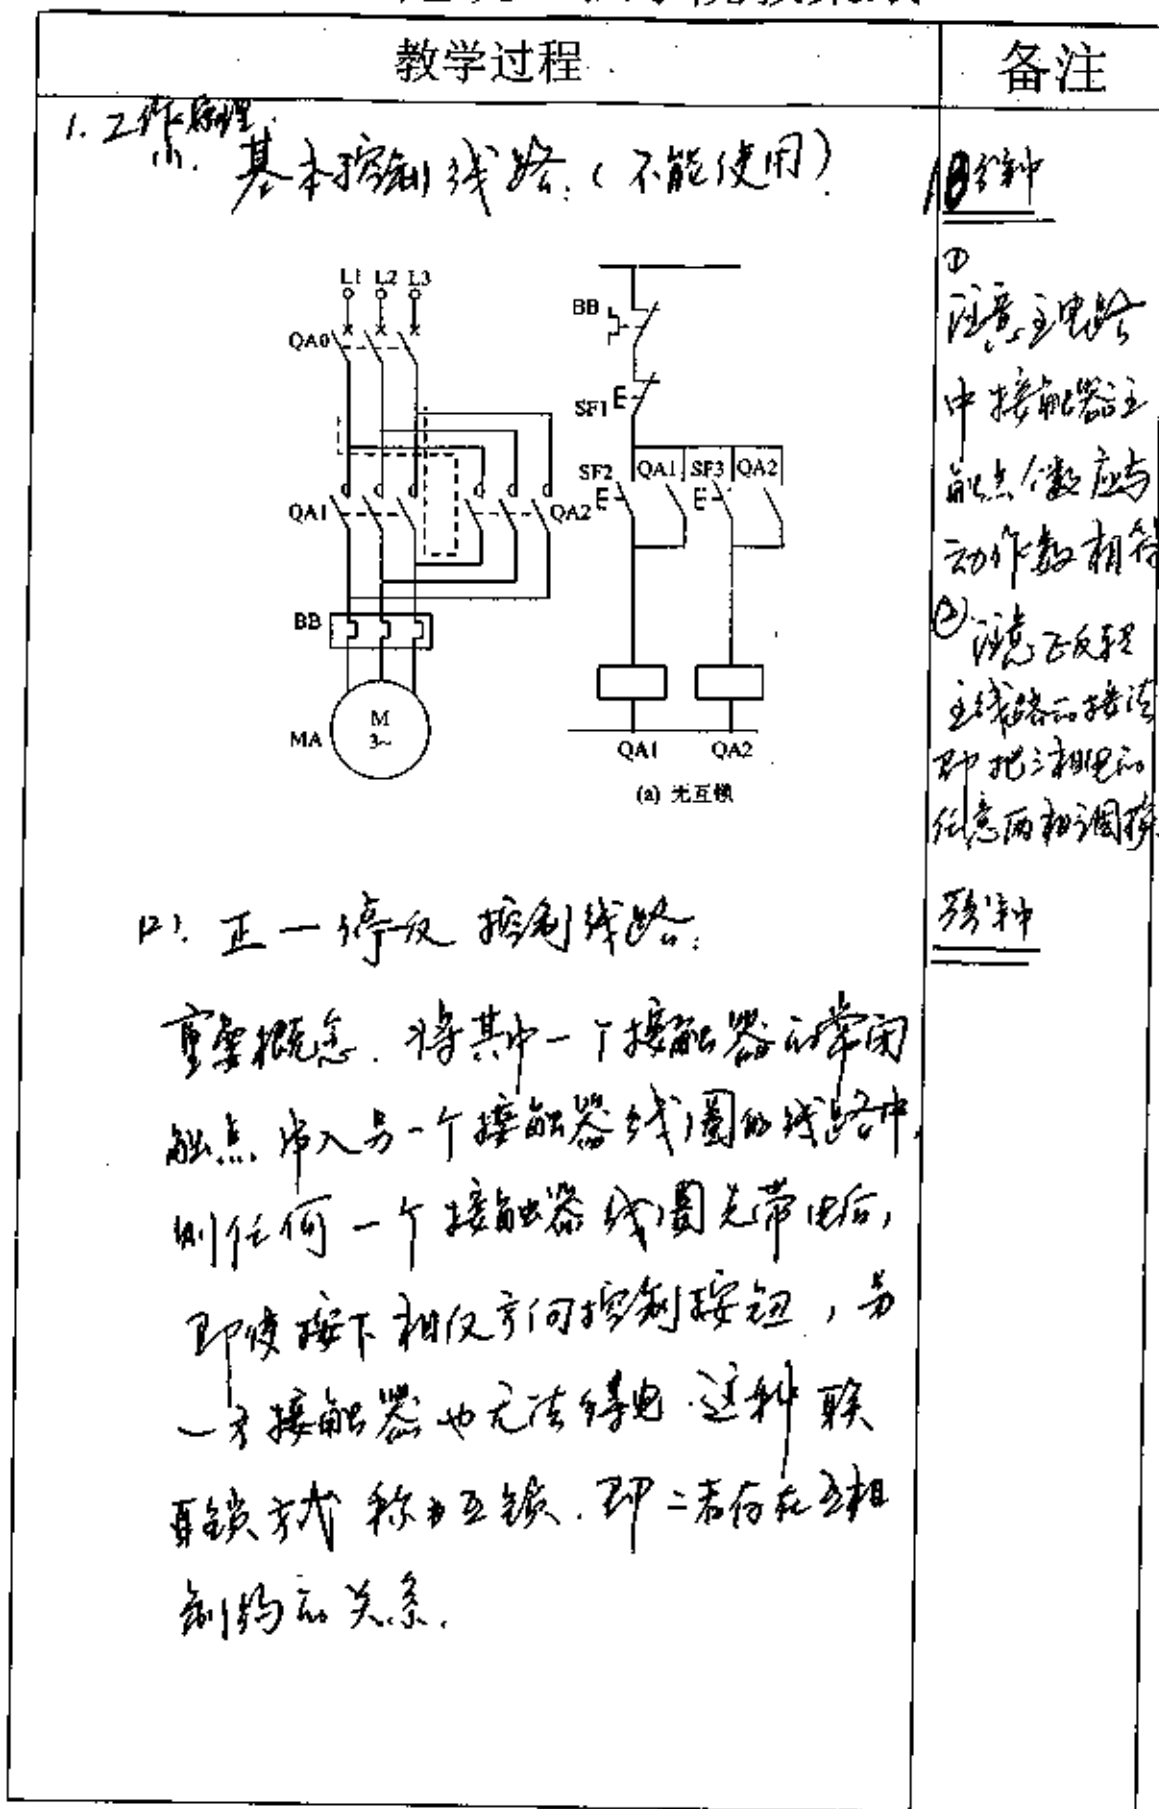 教学过程
备注
1. 工作原理.
(1). 基本控制线路:(不能使用)
L1 L2 L3
QA0
QA1
QA2
BB
MA
M
3~
BB
SF1
SF2 QA1 SF3 QA2
QA1 QA2
(a) 无互锁
(2). 正一停反 控制线路:
重要概念. 将其中一个接触器的常闭
触点串入另一个接触器线圈的线路中,
则任何一个接触器线圈先带电后,
即使按下相反方向控制按钮,另
一方接触器也无法得电.这种联
锁方式称为互锁.即二者存在互相
制约的关系.
分钟
①
注意主电路
中接触器主
触点个数应与
动作数相符
②注意正反转
主线路的接法
即把三相电的
任意两相调换
分钟